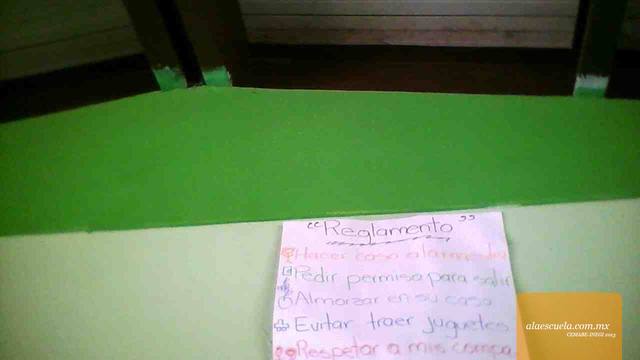 "Reglamento"
Hacer caso a la maestra
Pedir permiso para salir
Almorzar en su casa
Evitar traer juguetes
Respetar a mis compa
alaescuela.com.mx
CEMABE-INEGI 2013